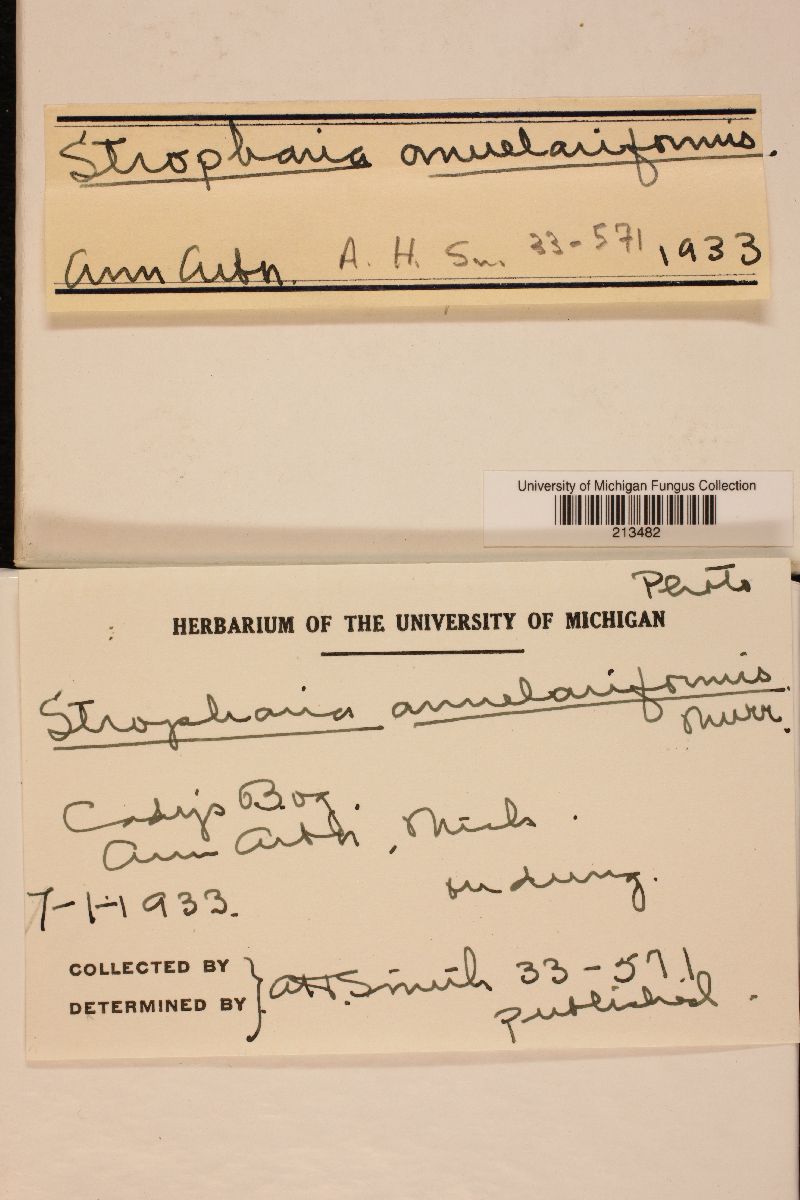 Stropharia annelariformis.
Ann Arbor. A. H. Sm. 33-571 1933
University of Michigan Fungus Collection
213482
Photo
HERBARIUM OF THE UNIVERSITY OF MICHIGAN
Stropharia annelariformis
Murr.
Cadys Bog.
Ann Arbor, Mich.
7-1-1933. on dung.
COLLECTED BY
DETERMINED BY } A.H. Smith 33-571
published.